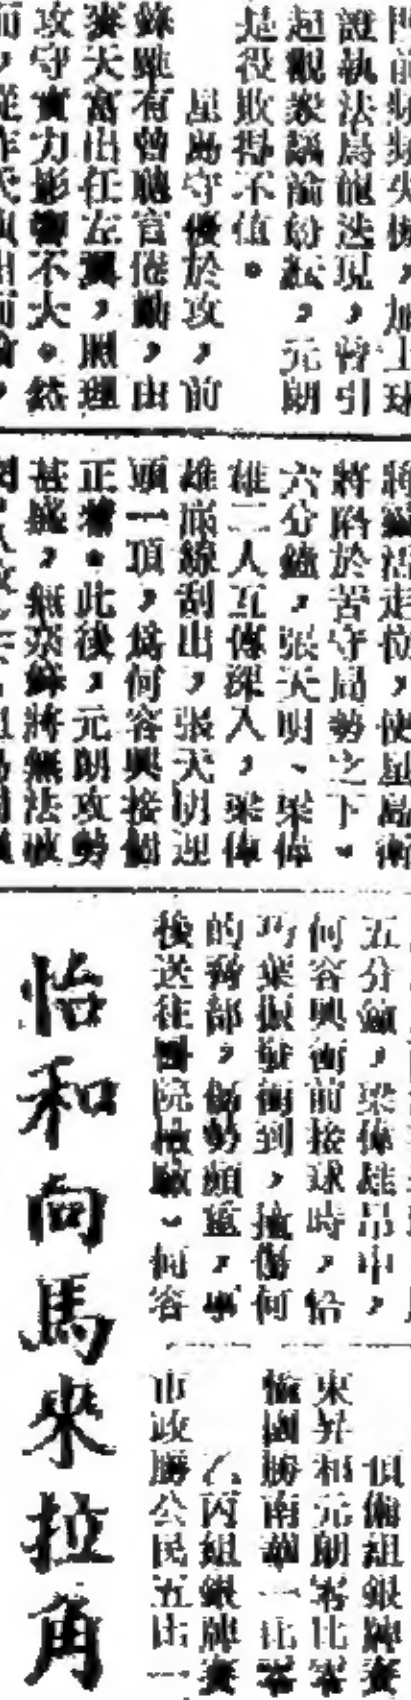 門前頻頻失機，加上球
證執法烏龍迭現，曾引
起觀眾議論紛紜，元朗
是役敗得不值。
星島守優於攻，前
雖有曾聰官倦勤，由
麥天富出任左翼，照理
攻守實力影響不大。然
走位，使星島衛
將陷於苦守局勢之下。
六分鐘，張天明、梁偉
雄二人互傳深入，梁偉
雄底線刮出，張天明迎
頭一頂，為何容興接個
正着。此後，元朗攻勢
甚盛，無奈鋒將無法破
五分鐘，梁偉雄吊中，
何容興衝前接球時，恰
巧葉振發衝到，撞傷何
的脅部，傷勢頗重，事
後送往醫院檢驗。何容
預備組銀牌賽
東昇和元朗零比零
恒園勝南華一比零
乙丙組銀牌賽
市政勝公民五比一
怡和向馬來拉角